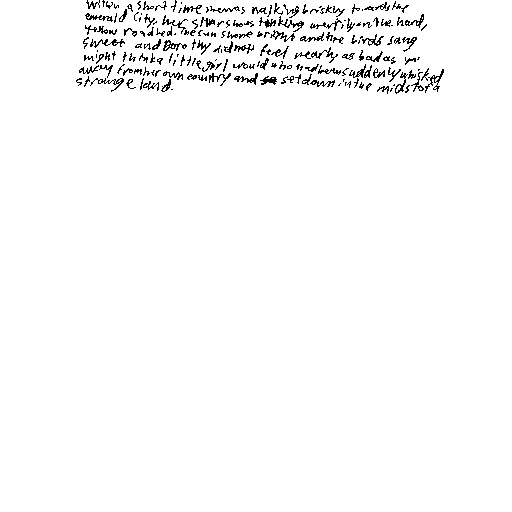 Within a short time she was walking briskly towards the
emerald City, her silver shoes tinking merrily on the hard,
yellow roadbed. The sun shone bright and the birds sang
sweet and Dorothy did not feel nearly as bad as you
might think a little girl would who had been suddenly whisked
away from her own country and set down in the midst of a
strange land.